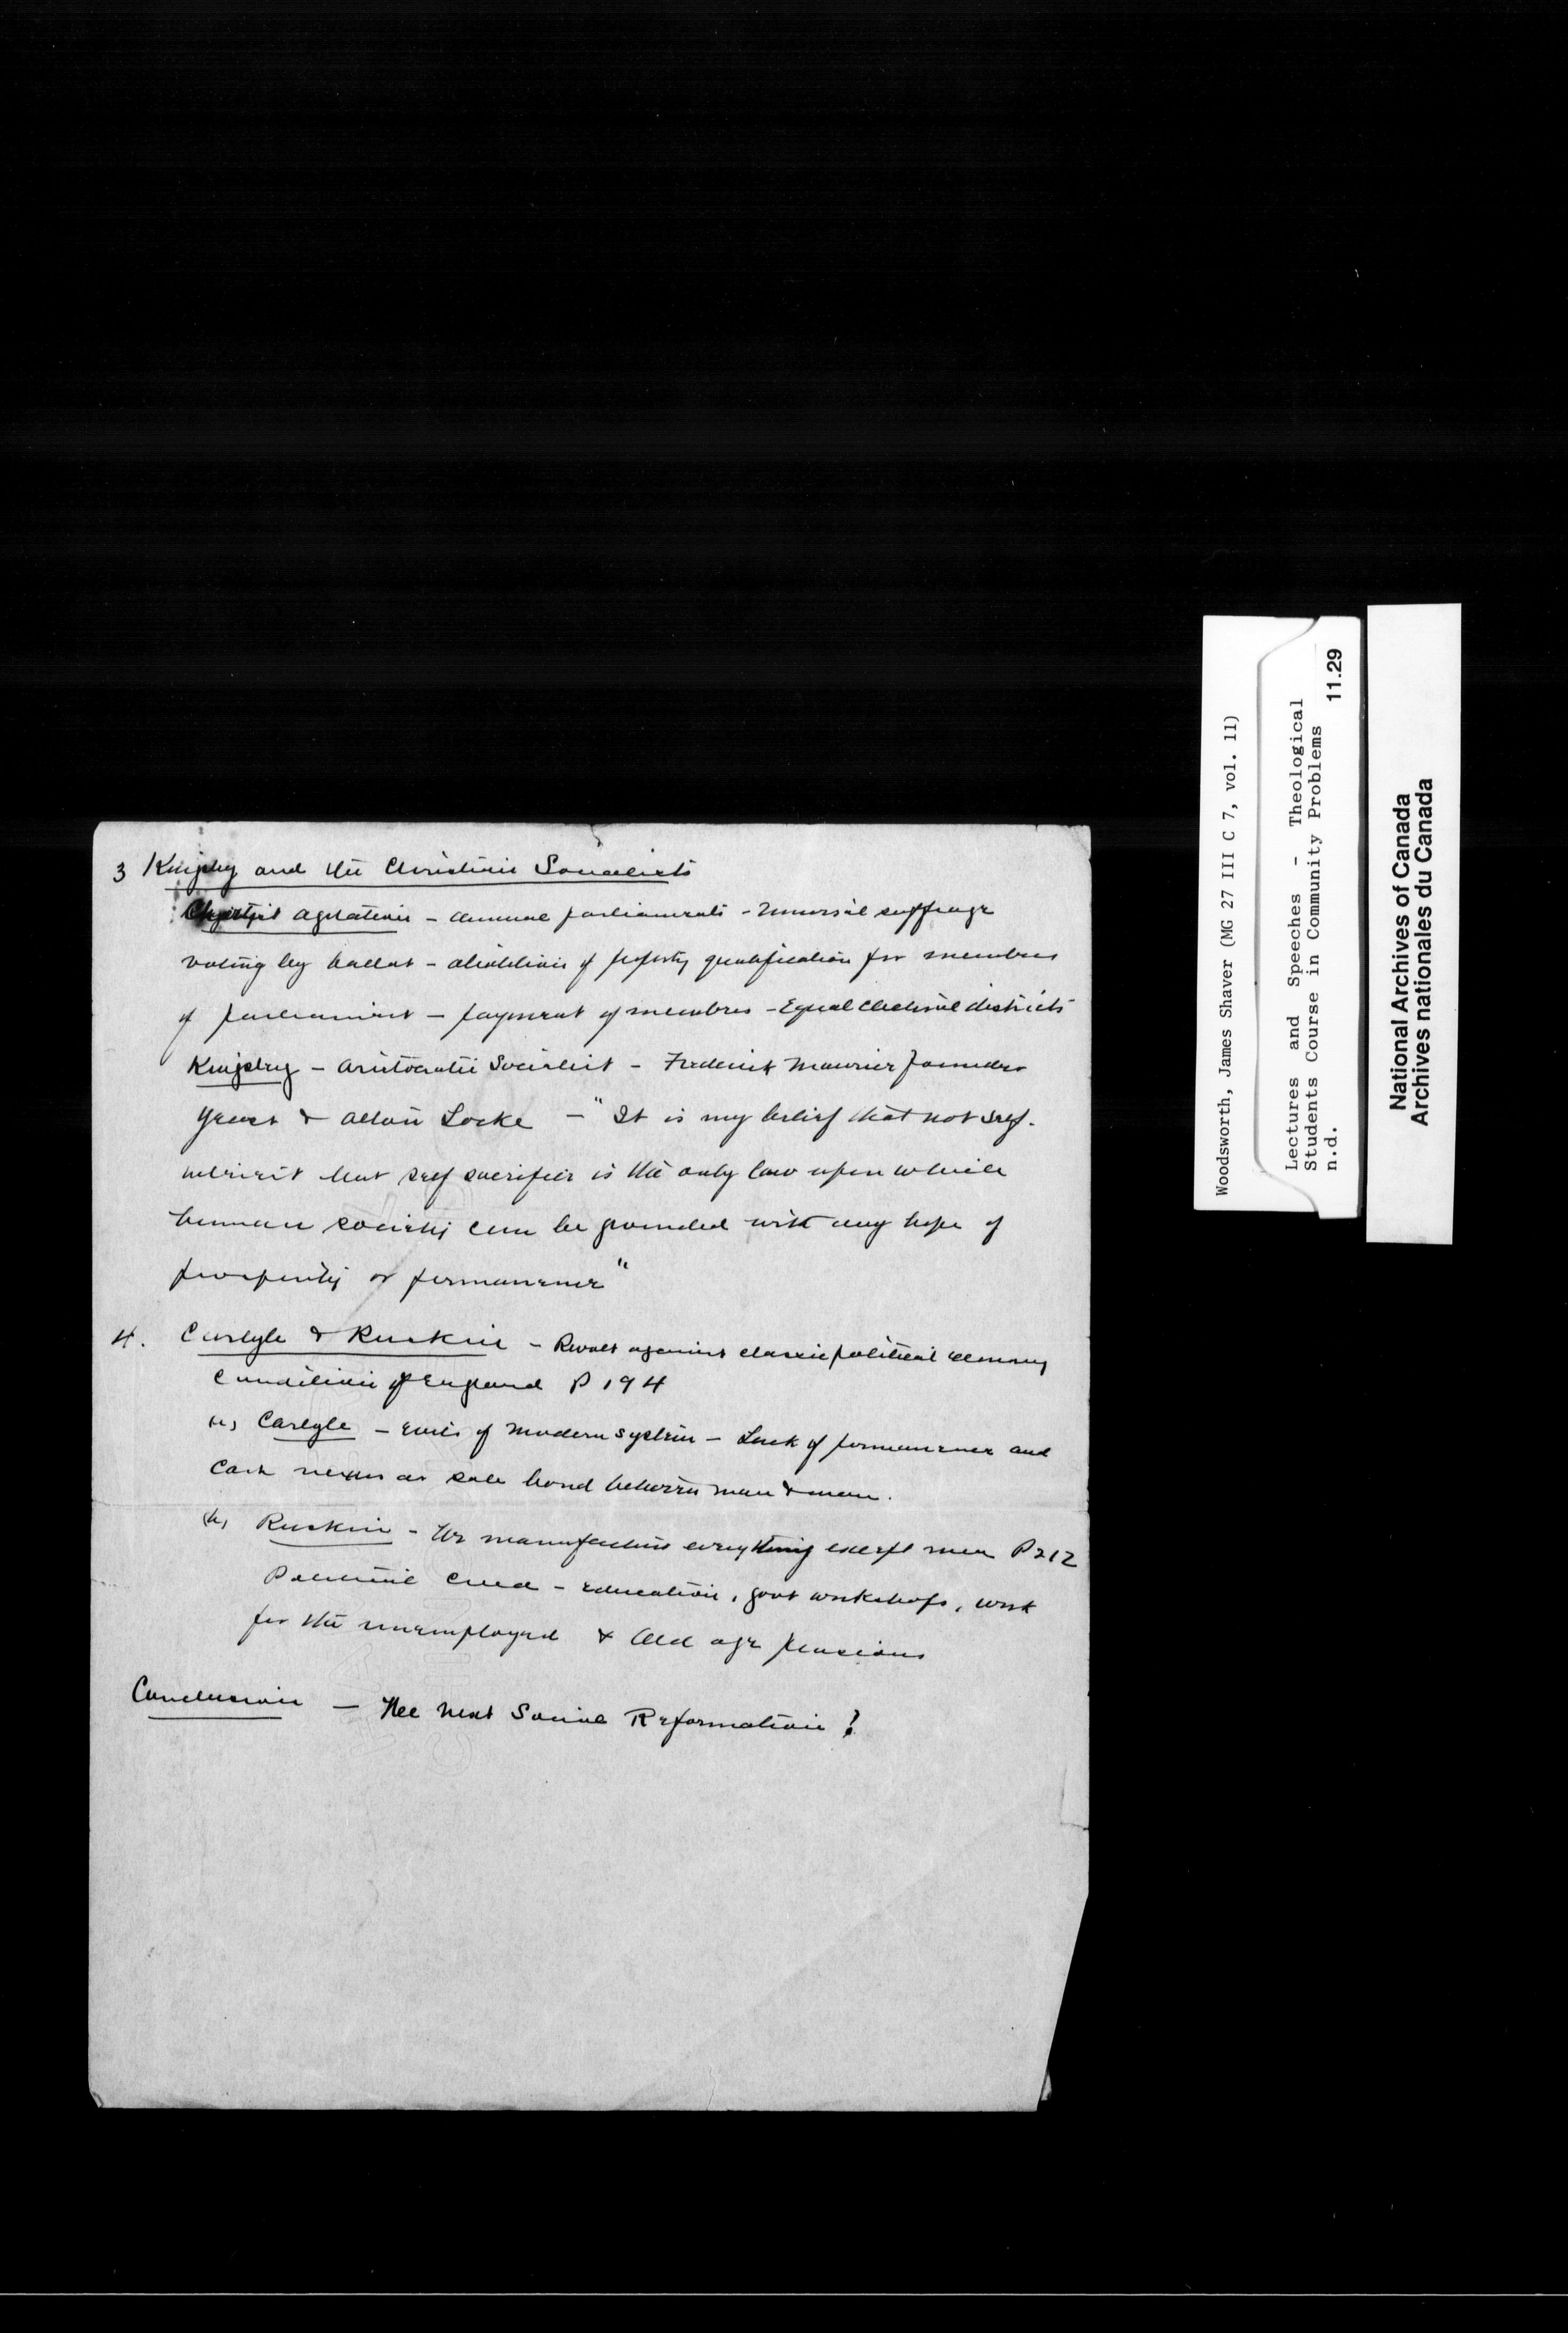 3 Kingsley and the Christian Socialists
Chartist agitation - annual parliaments - Universal suffrage
voting by ballot - abolition of property qualification for members
of parliament - payment of members - Equal electoral districts
Kingsley - aristocratic Socialist - Frederick Maurice founder
Yeast & Alton Locke - "It is my belief that not self-
interest but self sacrifice is the only law upon which
human society can be grounded with any hope of
prosperity or permanence"
4. Carlyle & Ruskin - Revolt against classic political economy
Condition of England P 194
(a) Carlyle - evils of modern system - Lack of permanence and
Cash nexus as sole bond between man & man.
(b) Ruskin - We manufacture everything except men P212
Political Creed - education, govt workshops, work
for the unemployed & Old age pensions
Conclusion - The Next Social Reformation?
Woodsworth, James Shaver (MG 27 III C 7, vol. 11)
Lectures and Speeches - Theological
Students Course in Community Problems
n.d. 11.29
National Archives of Canada
Archives nationales du Canada